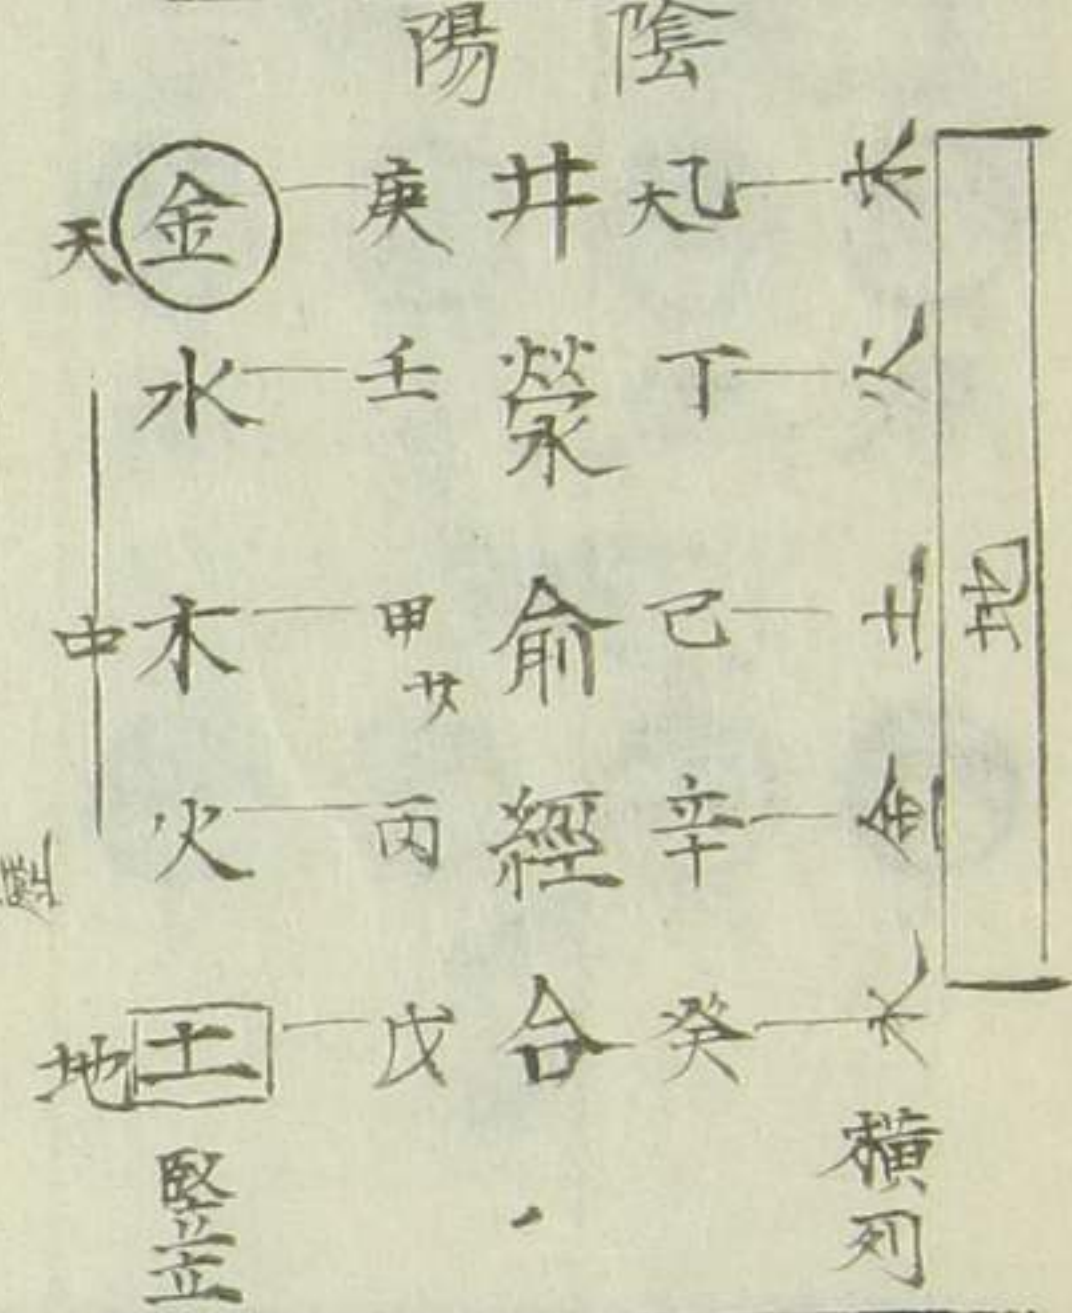 陰 陽
木 乙 井 庚 金 天
火 丁 滎 壬 水
地
土 己 俞 甲 木 中
金 辛 經 丙 火
水 癸 合 戊 土 地
橫列
竪立